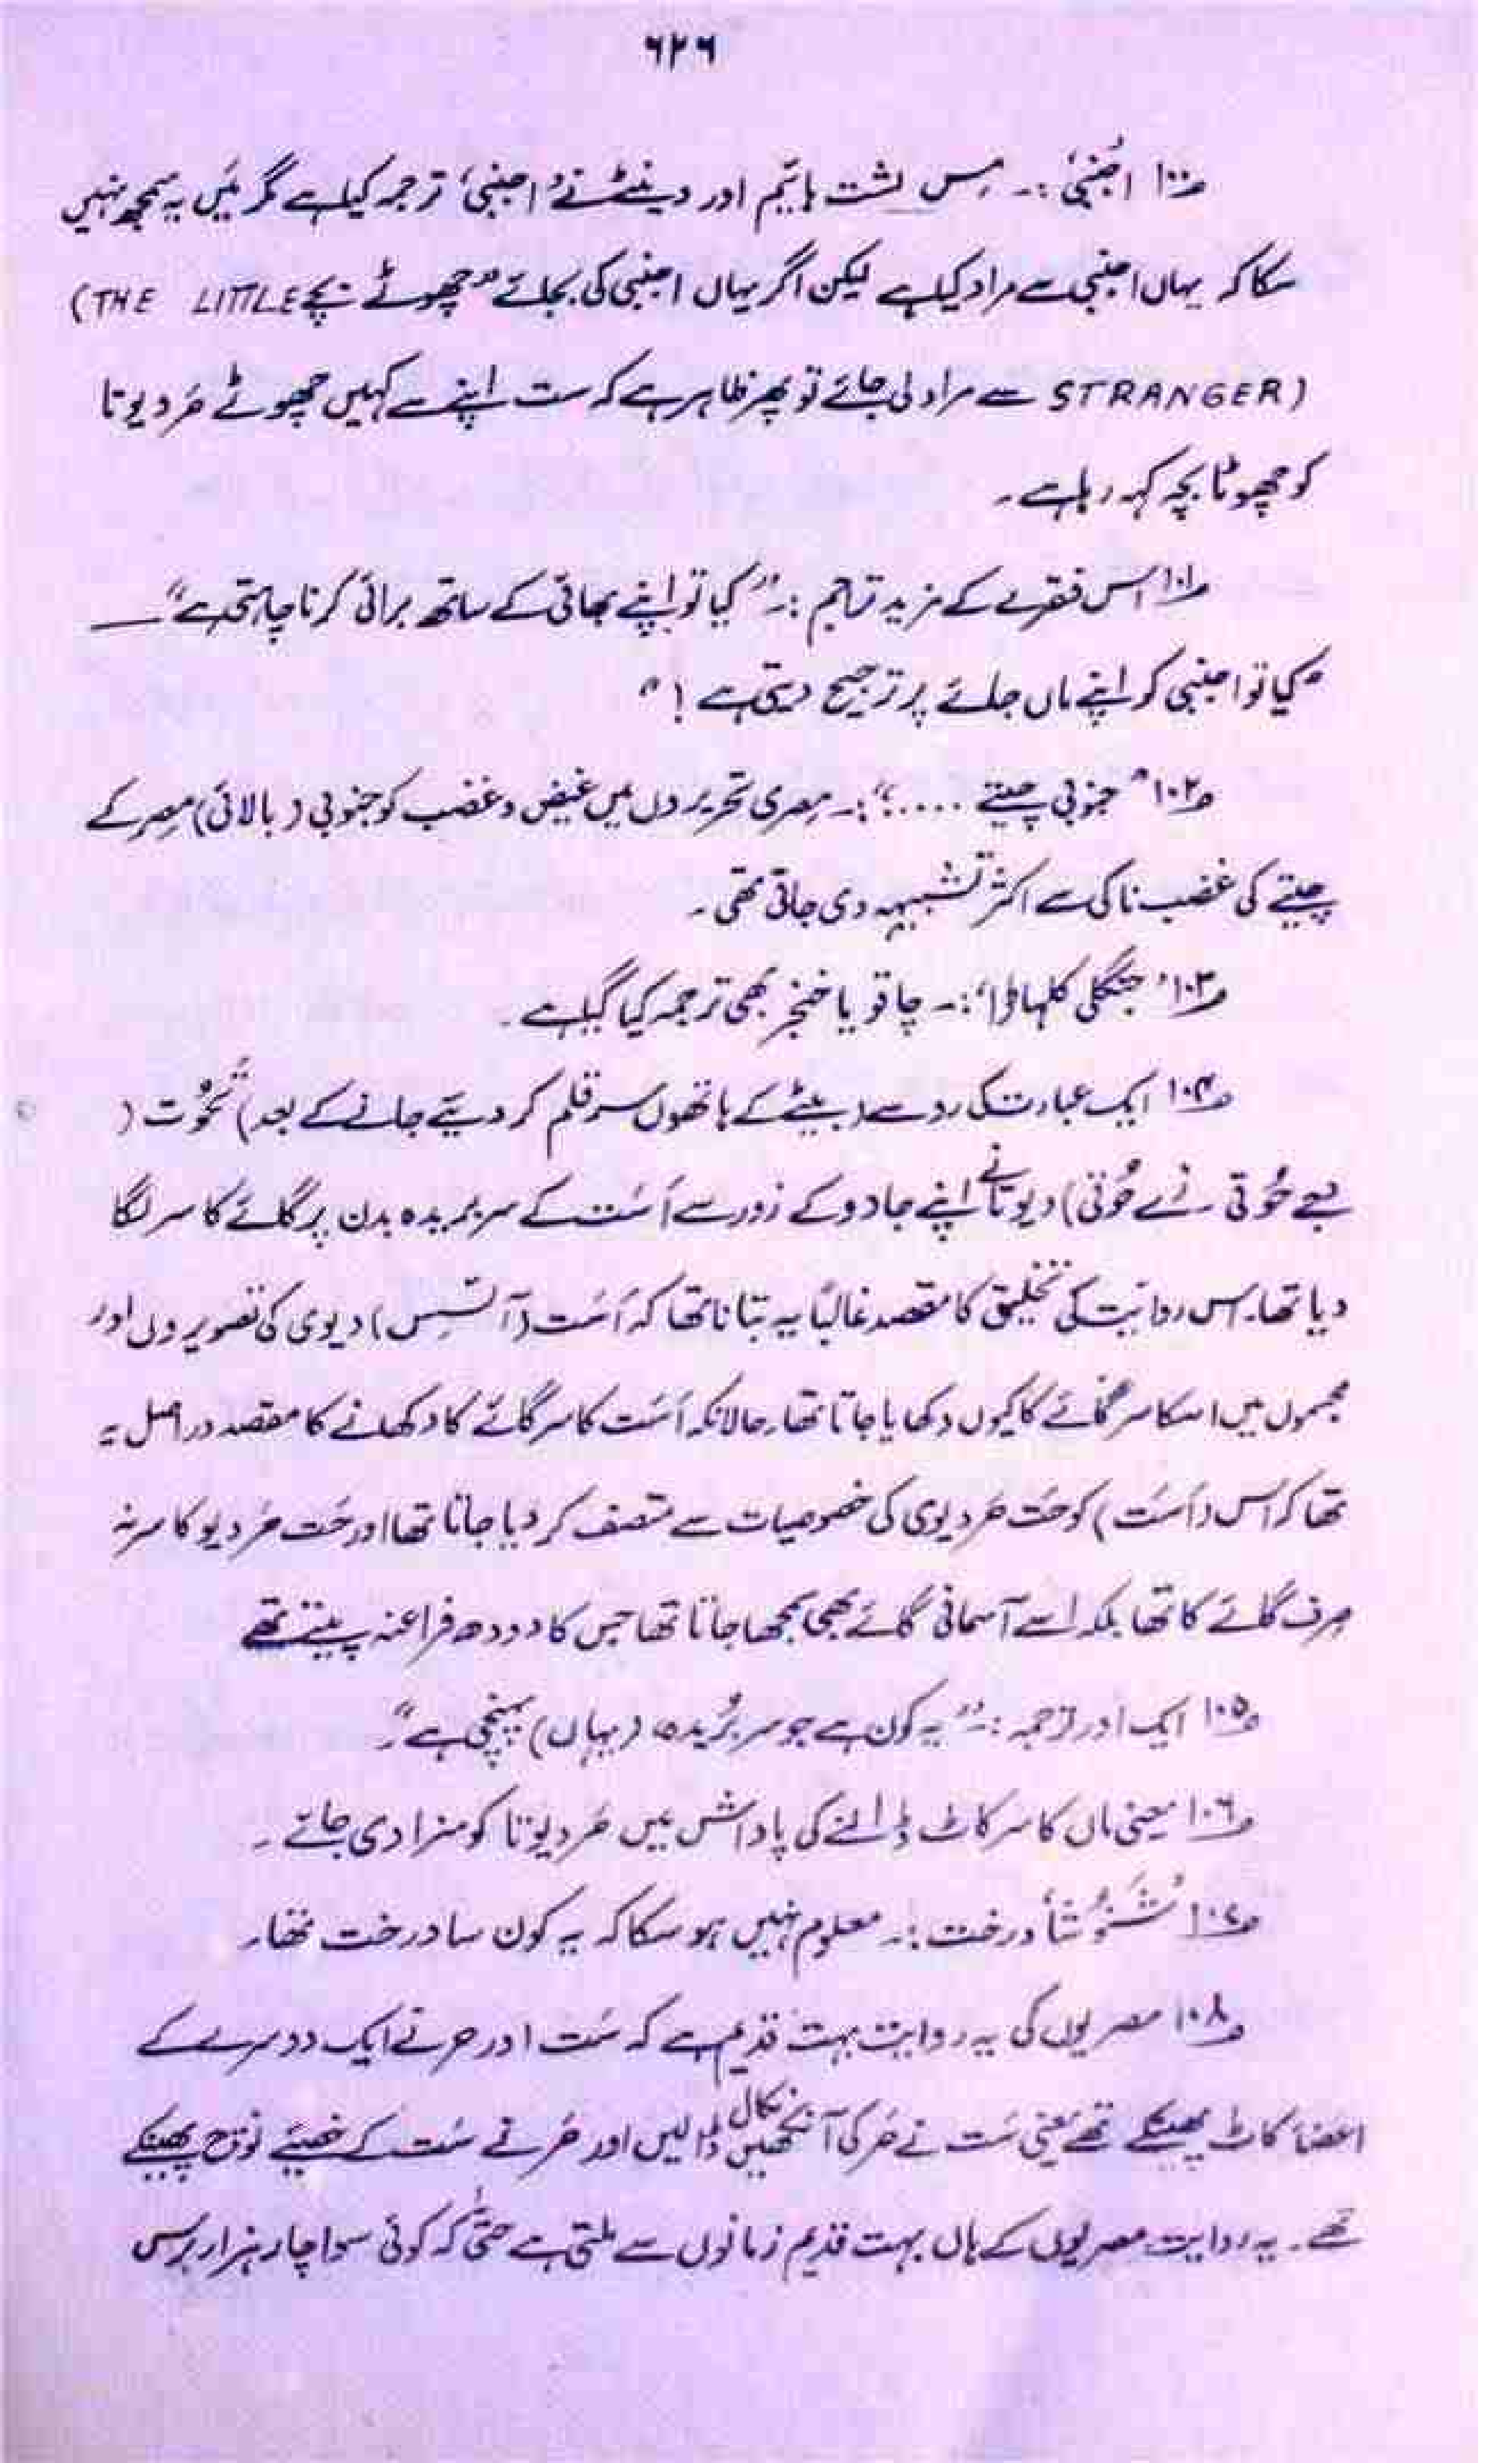 ۶۲۶
۱۰۰؎ اجنبی‘:۔ مِس لشت ہائیم اور دینٹے نے ’اجنبی‘ ترجمہ کیا ہے مگر مَیں یہ سمجھ نہیں
سکا کہ یہاں اجنبی سے مراد کیا ہے لیکن اگر یہاں اجنبی کی بجائے ”چھوٹے بچے (THE LITTLE
STRANGER) سے مراد لی جائے تو پھر ظاہر ہے کہ ست اپنے سے کہیں چھوٹے حَر دیوتا
کو چھوٹا بچہ کہہ رہا ہے۔
۱۰۱؎ اس فقرے کے مزید تراجم :۔ ”کیا تو اپنے بھائی کے ساتھ برائی کرنا چاہتی ہے“ ——
”کیا تو اجنبی کو اپنے ماں جائے پر ترجیح دیتی ہے !“
۱۰۲؎ ”جنوبی چیتے ....“:۔ مصری تحریروں میں غیض و غضب کو جنوبی (بالائی) مصر کے
چیتے کی غضب ناکی سے اکثر تشبیہہ دی جاتی تھی۔
۱۰۳؎ ’جنگلی کلہاڑا‘:۔ چاقو یا خنجر بھی ترجمہ کیا گیا ہے۔
۱۰۴؎ ایک عبارت کی رو سے (بیٹے کے ہاتھوں سر قلم کر دیئے جانے کے بعد) تحُوت (
جے حُوتی زے حُوتی) دیوتا نے اپنے جادو کے زور سے اَسَت کے سر بریدہ بدن پر گائے کا سر لگا
دیا تھا۔ اس روایت کی تخلیق کا مقصد غالباً یہ بتانا تھا کہ اَسَت (آئسِس) دیوی کی تصویروں اور
مجسموں میں اسکا سر گائے کا کیوں دکھایا جاتا تھا۔ حالانکہ اَسَت کا سر گائے کا دکھانے کا مقصد دراصل یہ
تھا کہ اُس (اَسَت) کو حَت حَر دیوی کی خصوصیات سے متصف کر دیا جاتا تھا اور حَت حَر دیو کا سر نہ
صرف گائے کا تھا بلکہ اسے آسمانی گائے بھی سمجھا جاتا تھا جس کا دودھ فراعنہ پیتے تھے
۱۰۵؎ ایک اور ترجمہ :۔ ”یہ کون ہے جو سر بُریدہ (یہاں) پہنچی ہے“۔
۱۰۶؎ یعنی ماں کا سر کاٹ ڈالنے کی پاداش میں حَر دیوتا کو سزا دی جائے۔
۱۰۷؎ شَنُوشأ درخت:۔ معلوم نہیں ہو سکا کہ یہ کون سا درخت تھا۔
۱۰۸؎ مصریوں کی یہ روایت بہت قدیم ہے کہ سَت اور حر نے ایک دوسرے کے
اعضأ کاٹ پھینکے تھے یعنی سَت نے حَر کی آنکھیں نکال ڈالیں اور حَر نے سَت کے خصیئے نوچ پھینکے
تھے۔ یہ روایت مصریوں کے ہاں بہت قدیم زمانوں سے ملتی ہے حتیٰ کہ کوئی سوا چار ہزار برس